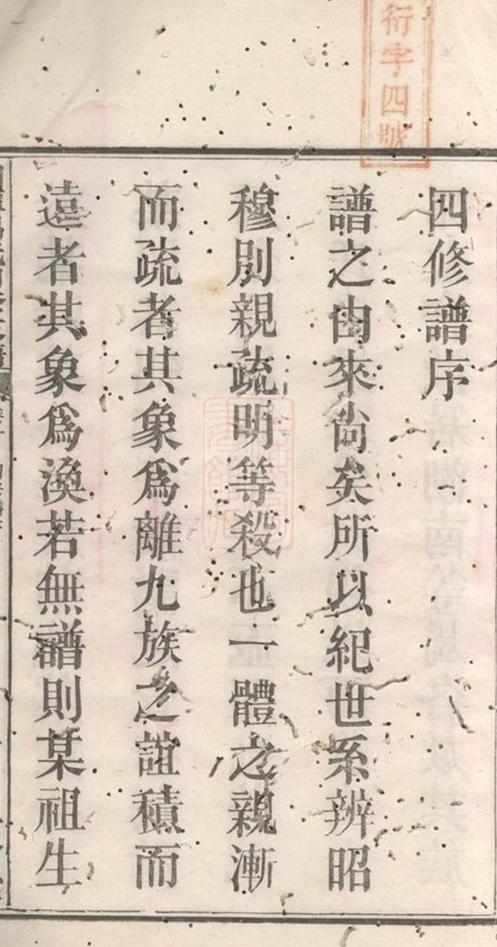 衍字四號
四修譜序
譜之由來尚矣所以紀世系辨昭
穆別親疏明等殺也一體之親漸
而疏者其象爲離九族之誼積而
遠者其象爲渙若無譜則某祖生